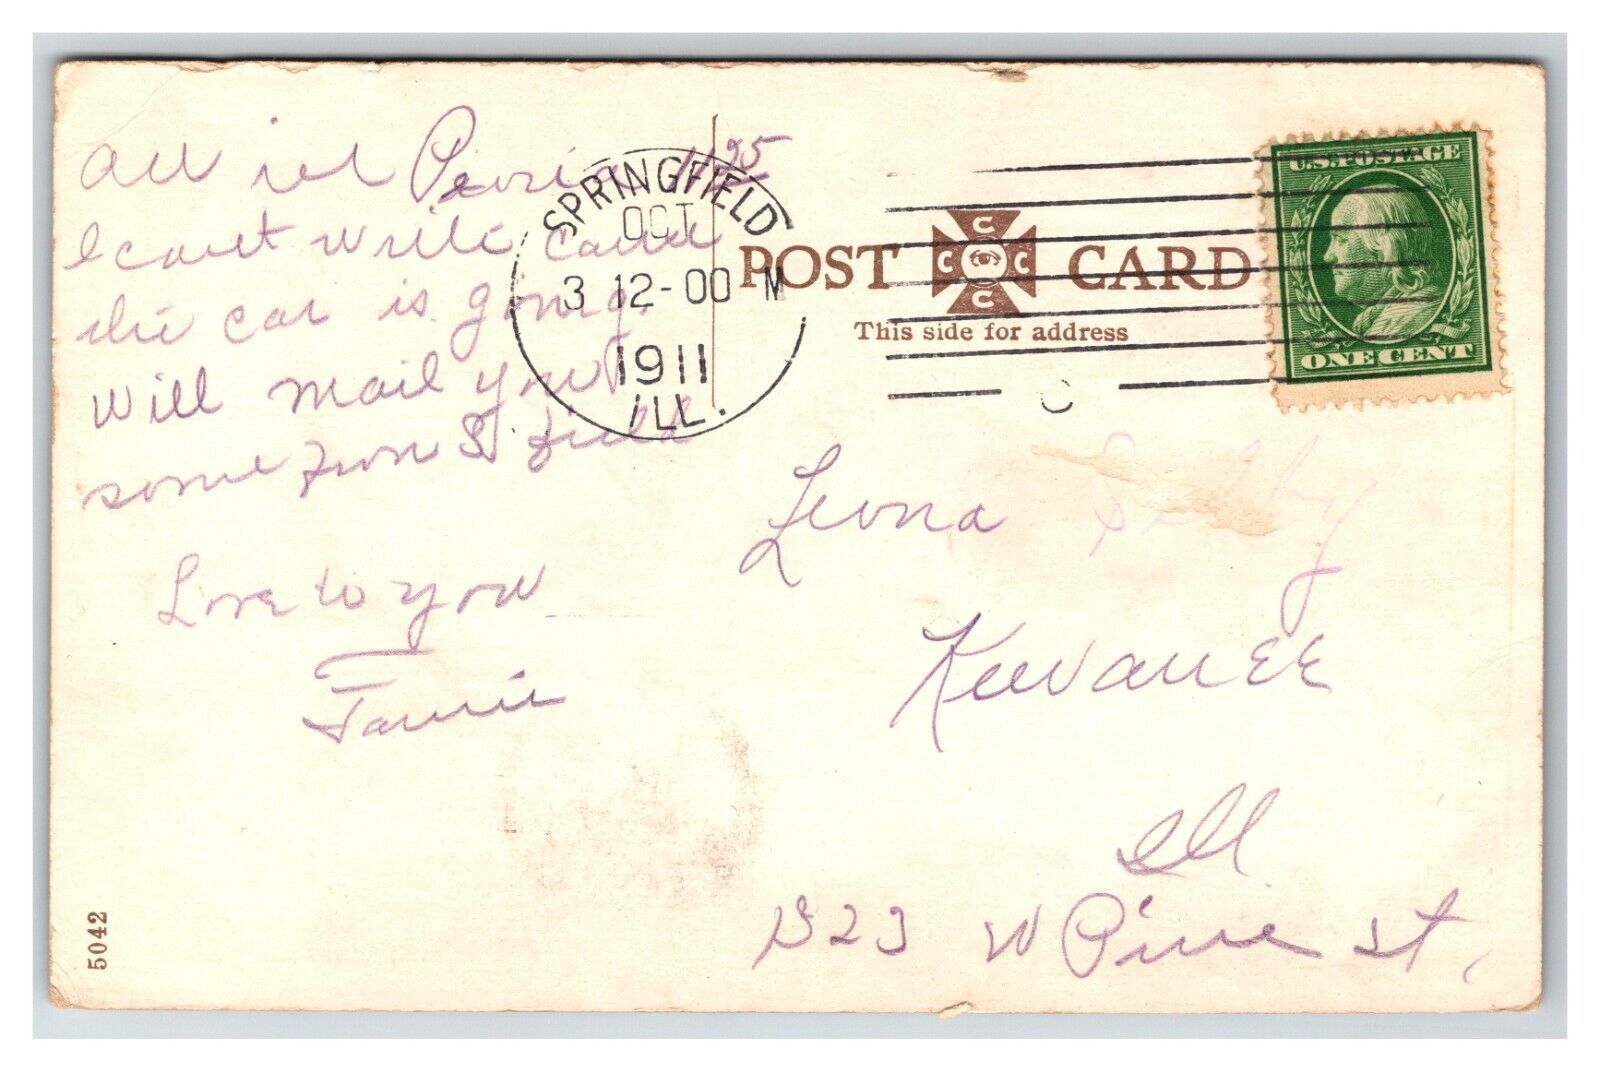 All in Peoria 1125
I can't write
the car is going.
Will mail you
some from S field
Love to you
SPRINGFIELD
OCT
3 12-00 M
1911
ILL.
POST CARD
C C C C
This side for address
U.S. POSTAGE
ONE CENT
Leona
Kewanee
Ill
W Pine st,
5042